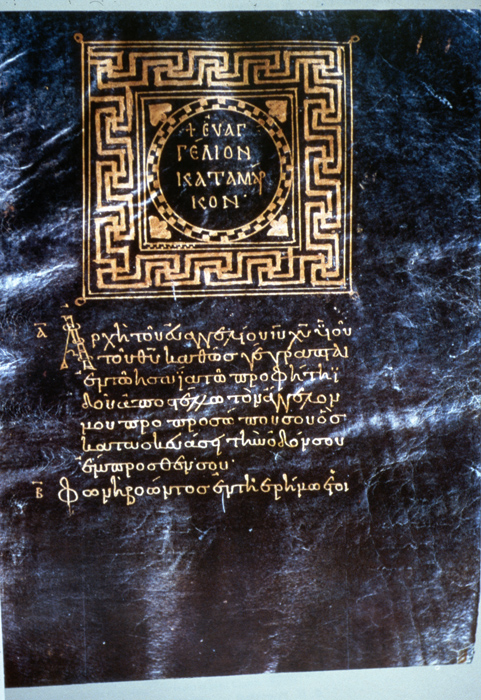 + ΕΥΑΓ
ΓΕΛΙΟΝ
ΚΑΤΑΜΑΡ
ΚΟΝ·
α Ἀρχὴ τοῦ εὐαγγελίου ι̅υ̅ χ̅υ̅ υἱοῦ
τοῦ θ̅υ̅ καθὼς γέγραπται
ἐν τῶ ἡσαΐα τῶ προφήτη ϊ
δοὺ ἀποστέλλω τὸν ἄγγελον
μου πρὸ προσώπου σου ὃς
κατασκευάσει τὴν ὁδόν σου
ἔμπροσθέν σου·
β φωνὴ βοῶντος ἐν τῆ ἐρήμω ἑτοι